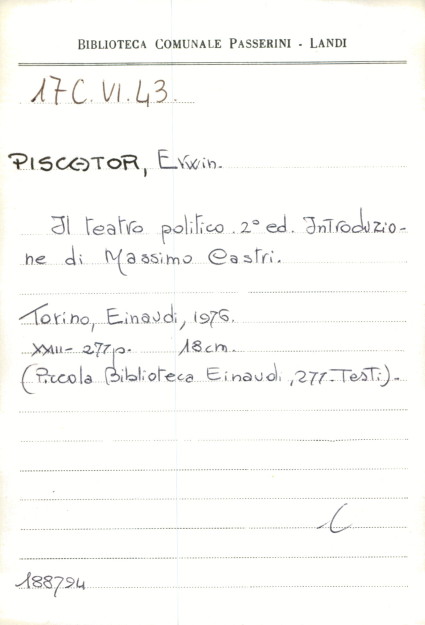 BIBLIOTECA COMUNALE PASSERINI - LANDI
17 C. VI. 43.
PISCATOR, Erwin.
Il teatro politico. 2° ed. Introduzio-
ne di Massimo Castri.
Torino, Einaudi, 1976.
XXIII- 277p. 18cm.
(Piccola Biblioteca Einaudi, 277-Testi).
C
188794